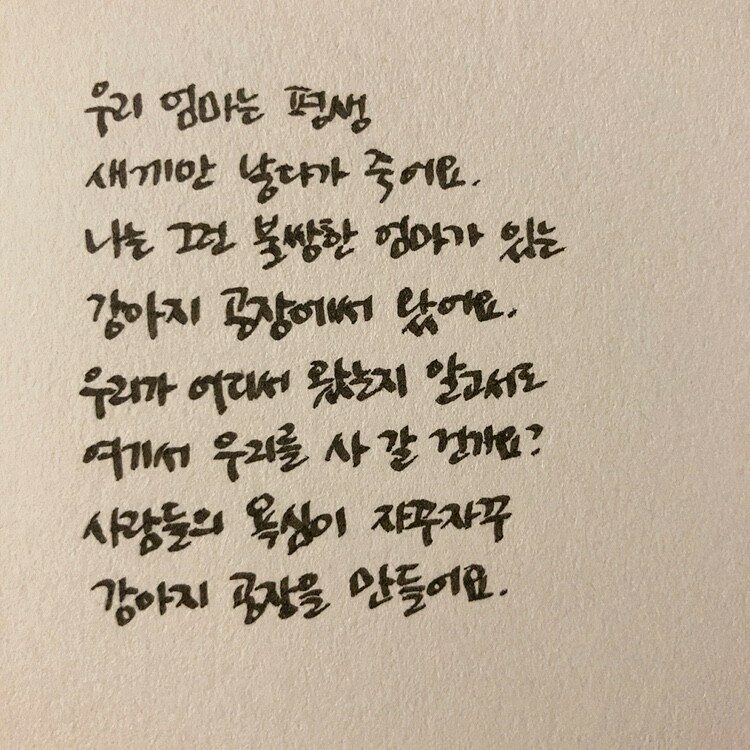 우리 엄마는 평생
새끼만 낳다가 죽어요.
나는 그런 불쌍한 엄마가 있는
강아지 공장에서 왔어요.
우리가 어디서 왔는지 알고서도
여기서 우리를 사 갈 건가요?
사람들의 욕심이 자꾸자꾸
강아지 공장을 만들어요.